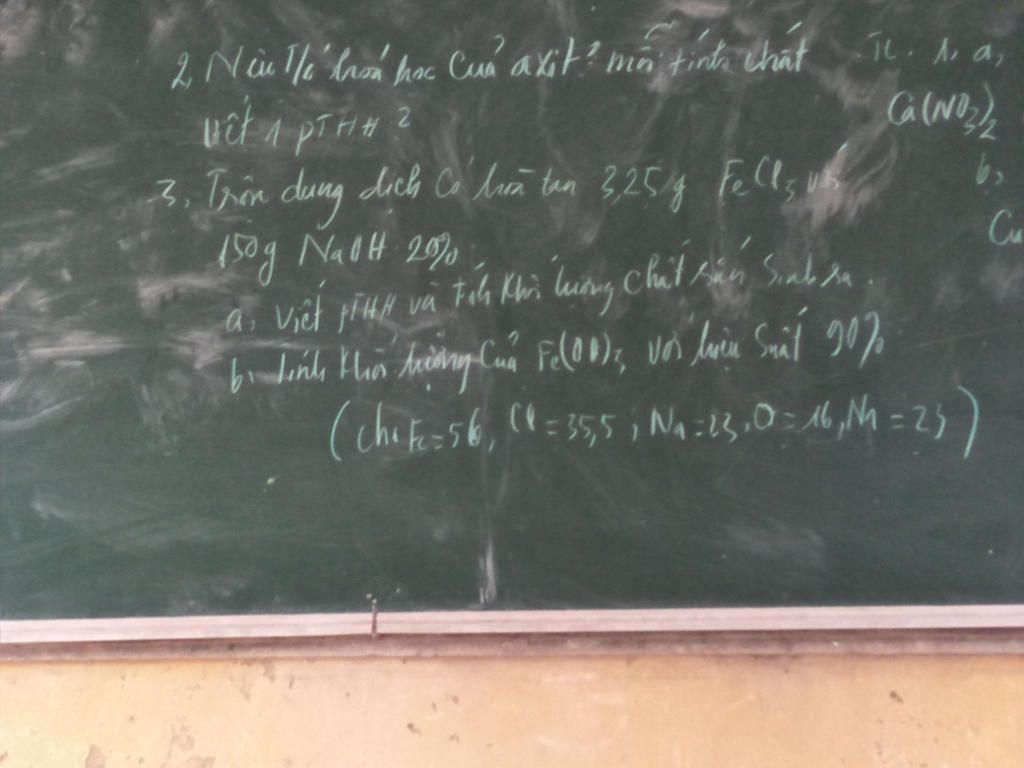 2, Nêu T/c hoá học của axit? mỗi tính chất
viết 1 PTHH?
3, Trộn dung dịch có hoà tan 3,25g FeCl3 với
150g NaOH 20%
a, viết PTHH và tính khối lượng chất rắn sinh ra.
b, tính khối lượng của Fe(OH)3 với hiệu suất 90%
(cho Fe=56, Cl=35,5; Na=23, O=16, Na=23)
1, a,
Ca(NO3)2
b,
Cu